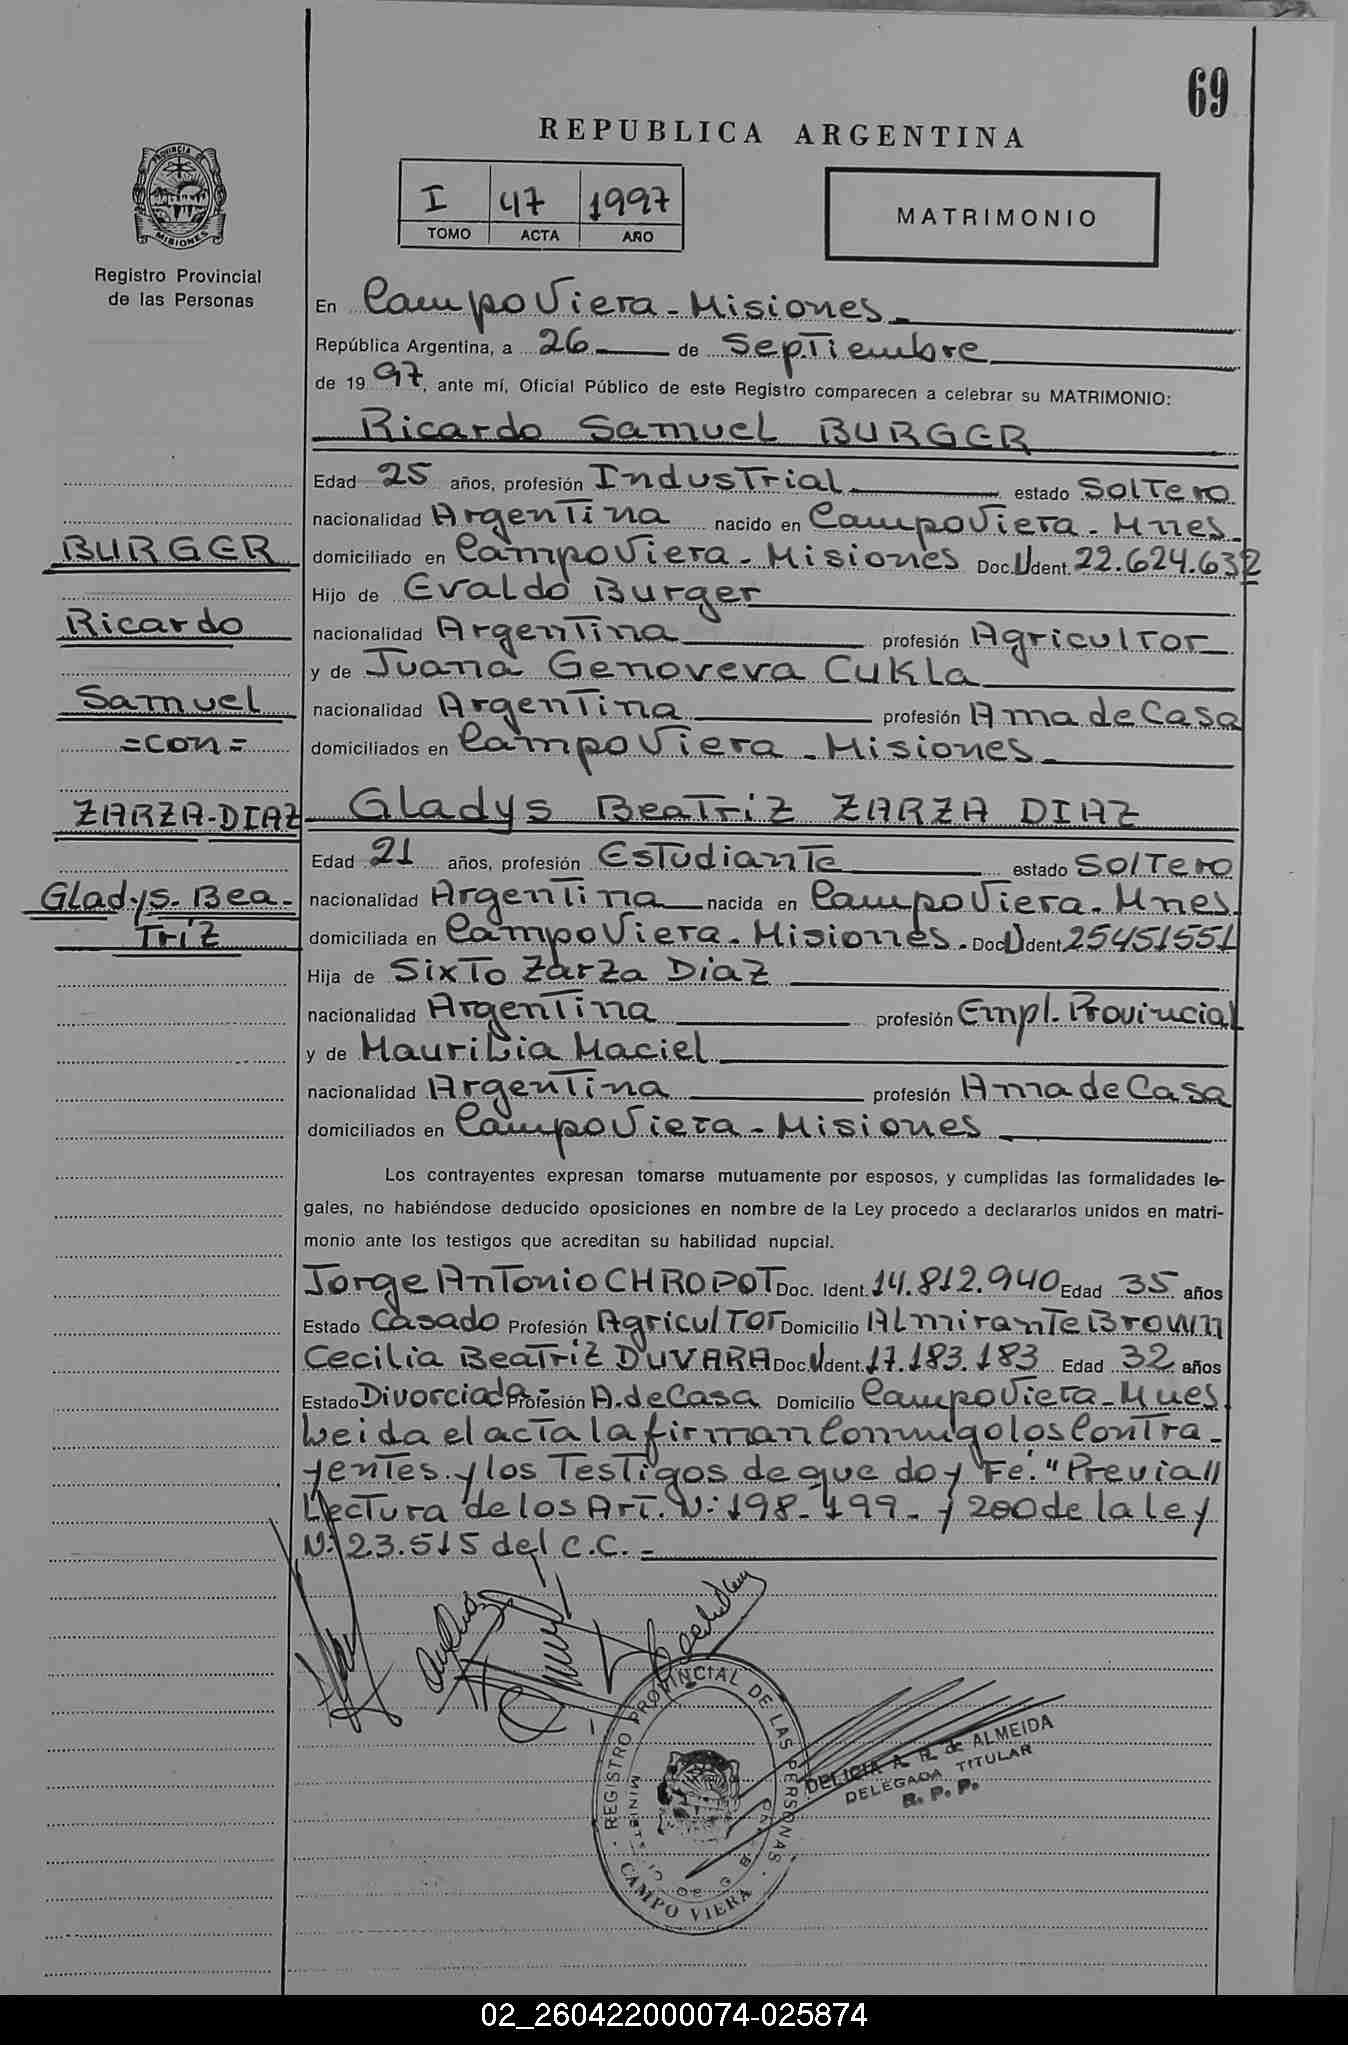 69
REPUBLICA ARGENTINA
PROVINCIA DE
MISIONES
Registro Provincial
de las Personas
I 47 1997
TOMO ACTA AÑO
MATRIMONIO
En Campo Viera - Misiones
República Argentina, a 26 de Septiembre
de 1997, ante mí, Oficial Público de este Registro comparecen a celebrar su MATRIMONIO:
Ricardo Samuel BURGER
Edad 25 años, profesión Industrial estado Soltero
nacionalidad Argentina nacido en Campo Viera - Mnes
domiciliado en Campo Viera - Misiones Doc. Udent. 22.624.632
Hijo de Evaldo Burger
nacionalidad Argentina profesión Agricultor
y de Juana Genoveva Cukla
nacionalidad Argentina profesión Ama de Casa
domiciliados en Campo Viera - Misiones
BURGER
Ricardo
Samuel
=con=
ZARZA-DIAZ
Gladys. Bea-
triz
Gladys Beatriz ZARZA DIAZ
Edad 21 años, profesión Estudiante estado Soltero
nacionalidad Argentina nacida en Campo Viera - Mnes
domiciliada en Campo Viera - Misiones. Doc. Udent 25451551
Hija de Sixto Zarza Diaz
nacionalidad Argentina profesión Empl. Provincial
y de Maurilia Maciel
nacionalidad Argentina profesión Ama de Casa
domiciliados en Campo Viera - Misiones
Los contrayentes expresan tomarse mutuamente por esposos, y cumplidas las formalidades le-
gales, no habiéndose deducido oposiciones en nombre de la Ley procedo a declararlos unidos en matri-
monio ante los testigos que acreditan su habilidad nupcial.
Jorge Antonio CHROPOT Doc. Ident. 14.812.940 Edad 35 años
Estado Casado Profesión Agricultor Domicilio Almirante Brown
Cecilia Beatriz DUVARA Doc. Udent. 17.183.183 Edad 32 años
Estado Divorciada Profesión A. de Casa Domicilio Campo Viera - Mnes
Leida el acta la firman Conmigo los Contra-
yentes y los Testigos de que doy Fé. "Previa"
Lectura de los Art. N: 198- 199- y 200 de la ley
N: 23.515 del C.C.-
REGISTRO PROVINCIAL DE LAS PERSONAS
CAMPO VIERA
DELICIA A. R. de ALMEIDA
DELEGADA TITULAR
R. P. P.
02_260422000074-025874